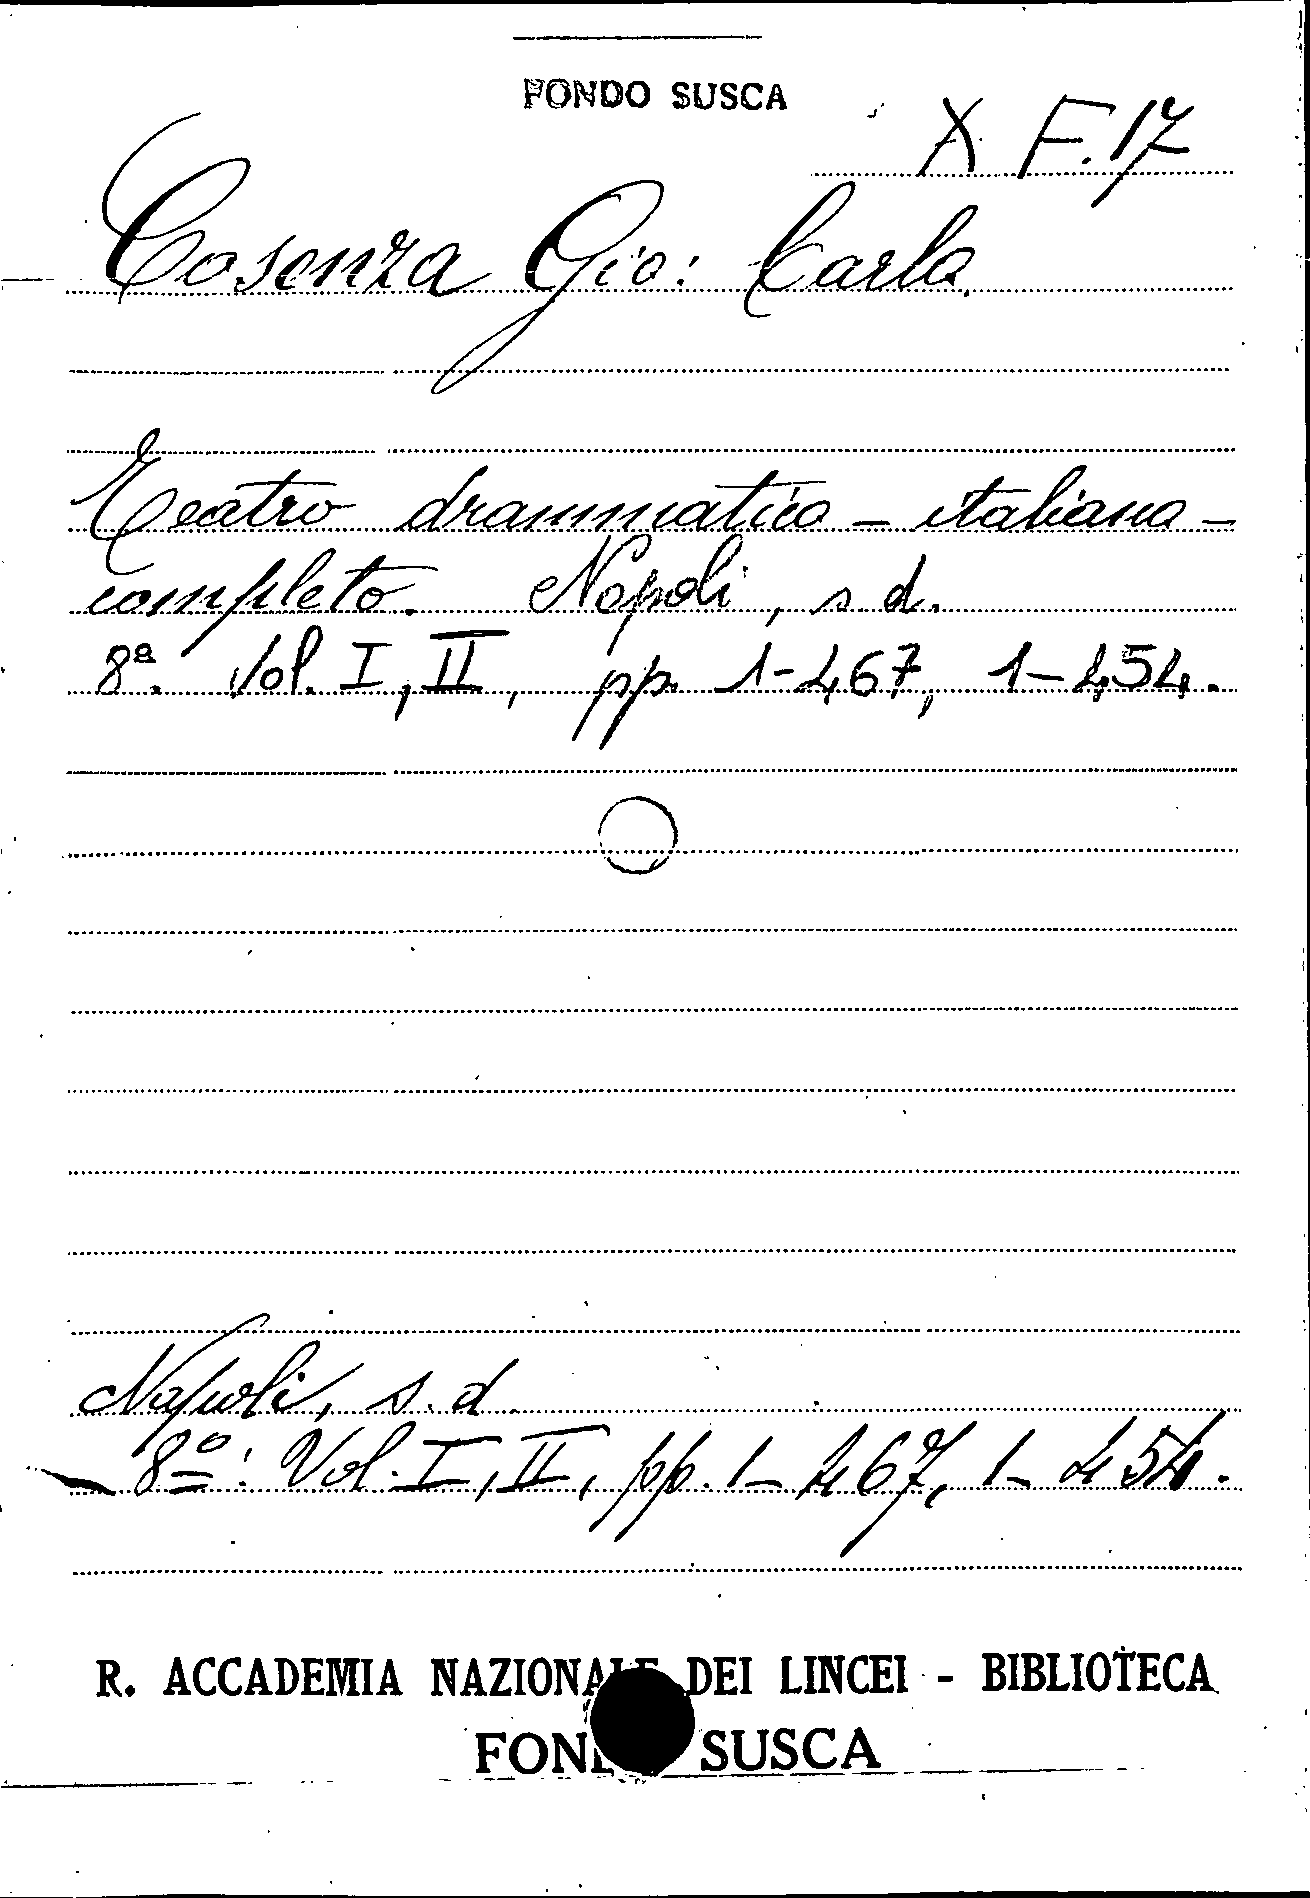 FONDO SUSCA
X. F. 17
Cosenza Gio: Carlo.
Teatro drammatico - italiano -
completo. Napoli, s. d.
8ª. Vol. I, II, pp. 1-467, 1-454.
Napoli, s. d.
8º: Vol. I, II, pp. 1-467, 1-454.
R. ACCADEMIA NAZIONALE DEI LINCEI - BIBLIOTECA
FONDO SUSCA